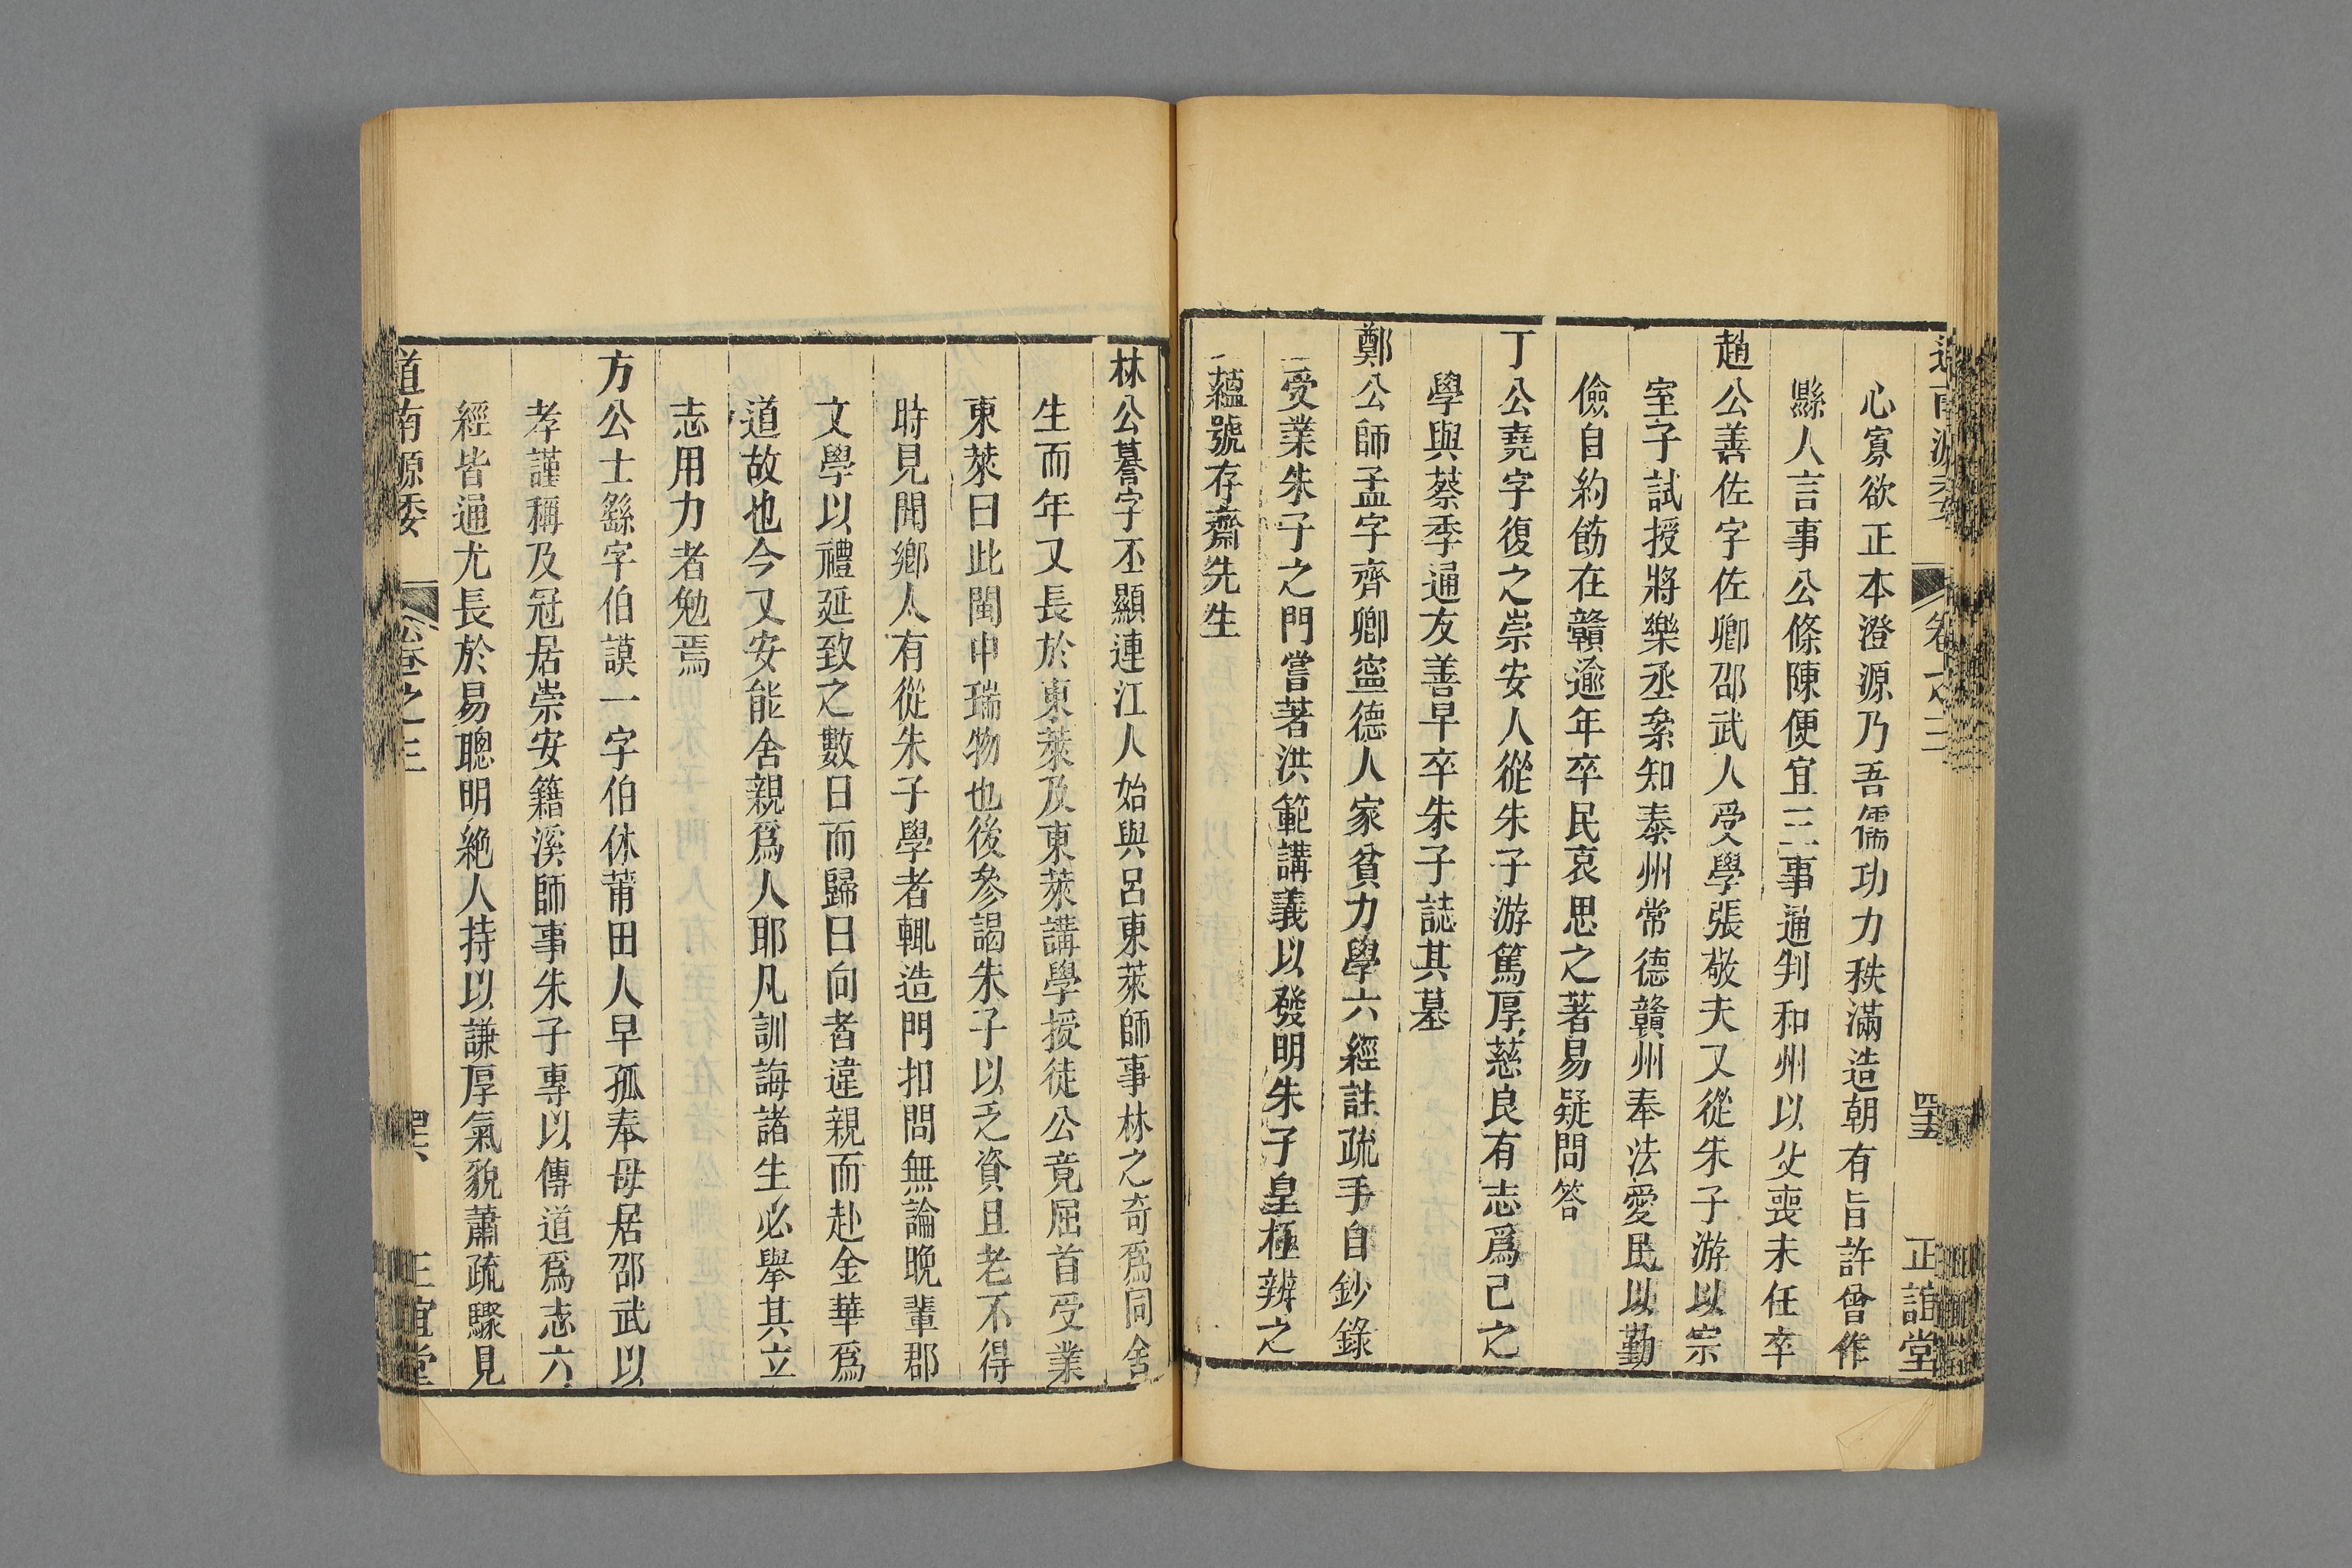 道南源委 卷之三 罜 正誼堂
心寡欲正本澄源乃吾儒功力秩滿造朝有旨許曾作
縣人言事公條陳便宜三事通判和州以父喪未任卒
趙公善佐字佐卿邵武人受學張敬夫又從朱子游以宗
室子試授將樂丞纍知泰州常德贛州奉法愛民以勤
儉自約飭在贛逾年卒民哀思之著易疑問答
丁公堯字復之崇安人從朱子游篤厚慈良有志爲己之
學與蔡季通友善早卒朱子誌其墓
鄭公師孟字齊卿寧德人家貧力學六經註疏手自鈔錄
受業朱子之門嘗著洪範講義以發明朱子皇極辨之
蘊號存齋先生
林公謩字丕顯連江人始與呂東萊師事林之奇爲同舍
生而年又長於東萊及東萊講學授徒公竟屈首受業
東萊曰此閩中瑞物也後參謁朱子以乏資且老不得
時見聞鄉人有從朱子學者輒造門扣問無論晚輩郡
文學以禮延致之數日而歸曰向者違親而赴金華爲
道故也今又安能舍親爲人耶凡訓誨諸生必舉其立
志用力者勉焉
方公士繇字伯謨一字伯休莆田人早孤奉母居邵武以
孝謹稱及冠居崇安籍溪師事朱子專以傳道爲志六
經皆通尤長於易聰明絶人持以謙厚氣貌蕭疏驟見
道南源委 卷之三 正誼堂